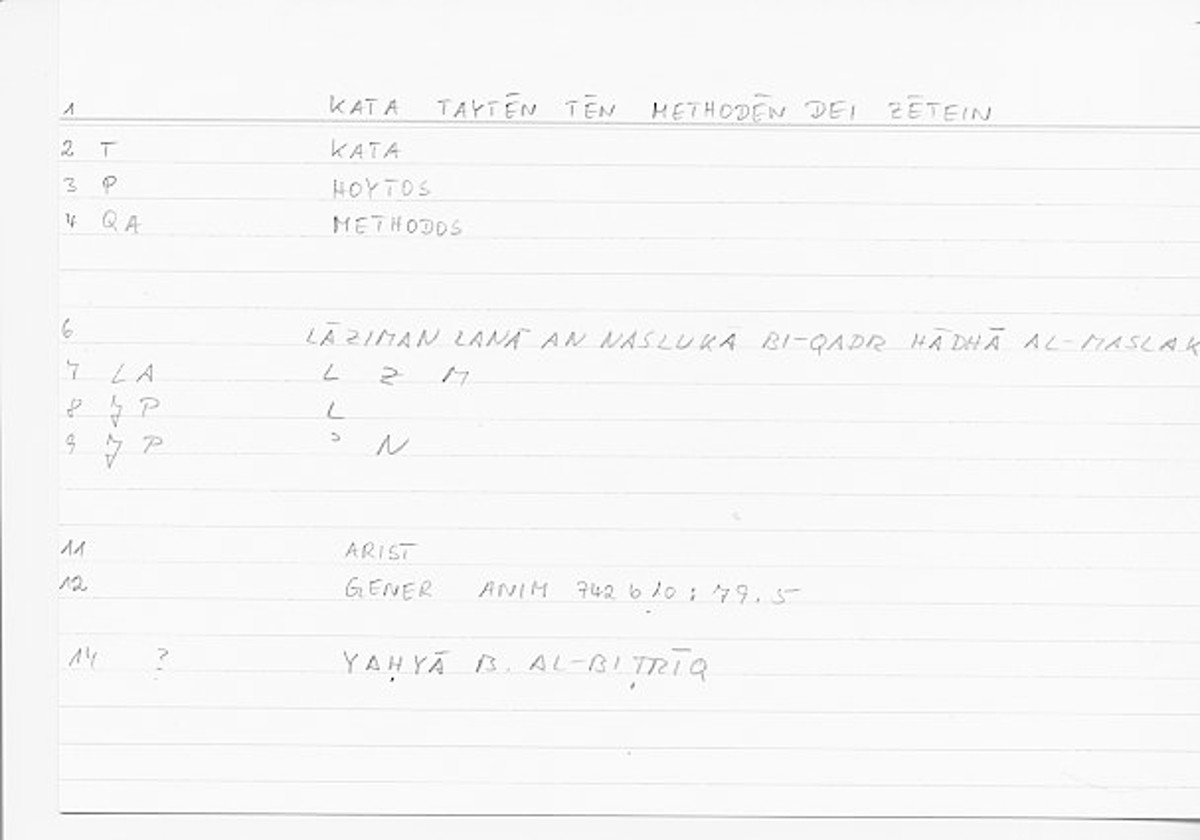 1 KATA TAYTĒN TĒN METHODĒN DEI ZĒTEIN
2 T KATA
3 P HOYTOS
4 QA METHODOS
6 LĀZIMAN LANĀ AN NASLUKA BI-QADR HĀDHĀ AL-MASLAK
7 LA L Z M
8 JP L
9 JP ʾ N
11 ARIST
12 GENER ANIM 742 b 10 : 79.5
14 ? YAḤYĀ B. AL-BIṬRĪQ